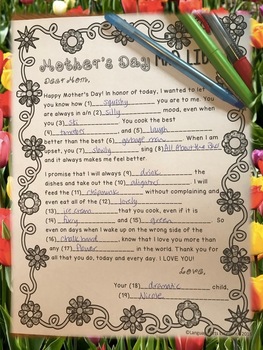 Mother's Day
Dear Mom,
Happy Mother's Day! In honor of today, I wanted to let
you know how (1) squishy you are to me. You
are always in a (2) silly mood, even when
you (3) ski. You cook the best
(4) tomatoes and (5) laugh
better than the best (6) garbage man. When I am
upset, you (7) slowly (8) All About the Bass
and it always makes me feel better.
I promise that I will always (9) drink the
dishes and take out the (10) alligator. I will
feed the (11) chipmunk without complaining and
even eat all of the (12) lovely
(13) ice cream that you cook, even if it is
(14) furry and (15) green. So
even on days when I wake up on the wrong side of the
(16) chalkboard, know that I love you more than
any (17) in the world. Thank you for
all that you do, today and every day. I LOVE YOU!
Love,
Your (18) dramatic child,
(19) Nicole